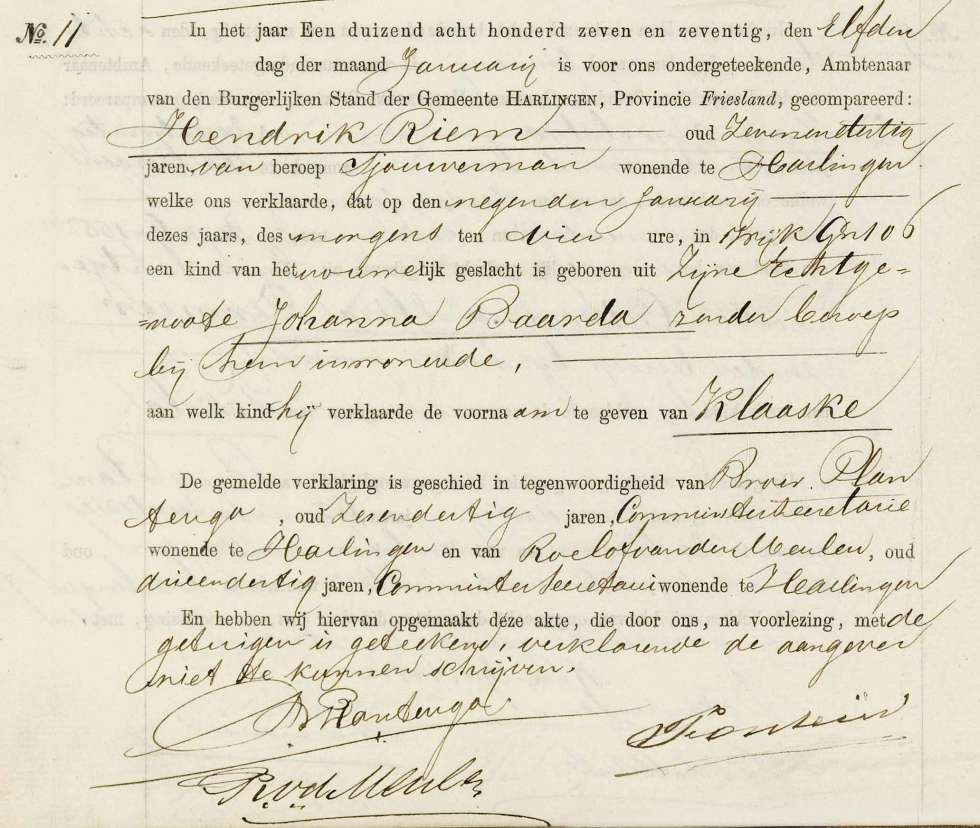 No. 11
In het jaar Een duizend acht honderd zeven en zeventig, den Elfden
dag der maand Januarij is voor ons ondergeteekende, Ambtenaar
van den Burgerlijken Stand der Gemeente HARLINGEN, Provincie Friesland, gecompareerd:
Hendrik Riem oud Zevenendertig
jaren, van beroep Sjouwerman wonende te Harlingen
welke ons verklaarde, dat op den negenden Januarij
dezes jaars, des morgens ten vier ure, in Wijk G No 106
een kind van het vrouwelijk geslacht is geboren uit Zijne Echtge-
=noote Johanna Baarda zonder beroep
bij hem inwonende,
aan welk kind hij verklaarde de voornaam te geven van Klaaske
De gemelde verklaring is geschied in tegenwoordigheid van Broer Plan
tenga, oud Zesendertig jaren, Commies ter Secretarie
wonende te Harlingen en van Roelof van der Meulen, oud
drieendertig jaren, Commies ter Secretarie wonende te Harlingen
En hebben wij hiervan opgemaakt deze akte, die door ons, na voorlezing, met de
getuigen is geteekend, verklarende de aangever
niet te kunnen schrijven.
B Plantenga
Fontein
R vd Meulen